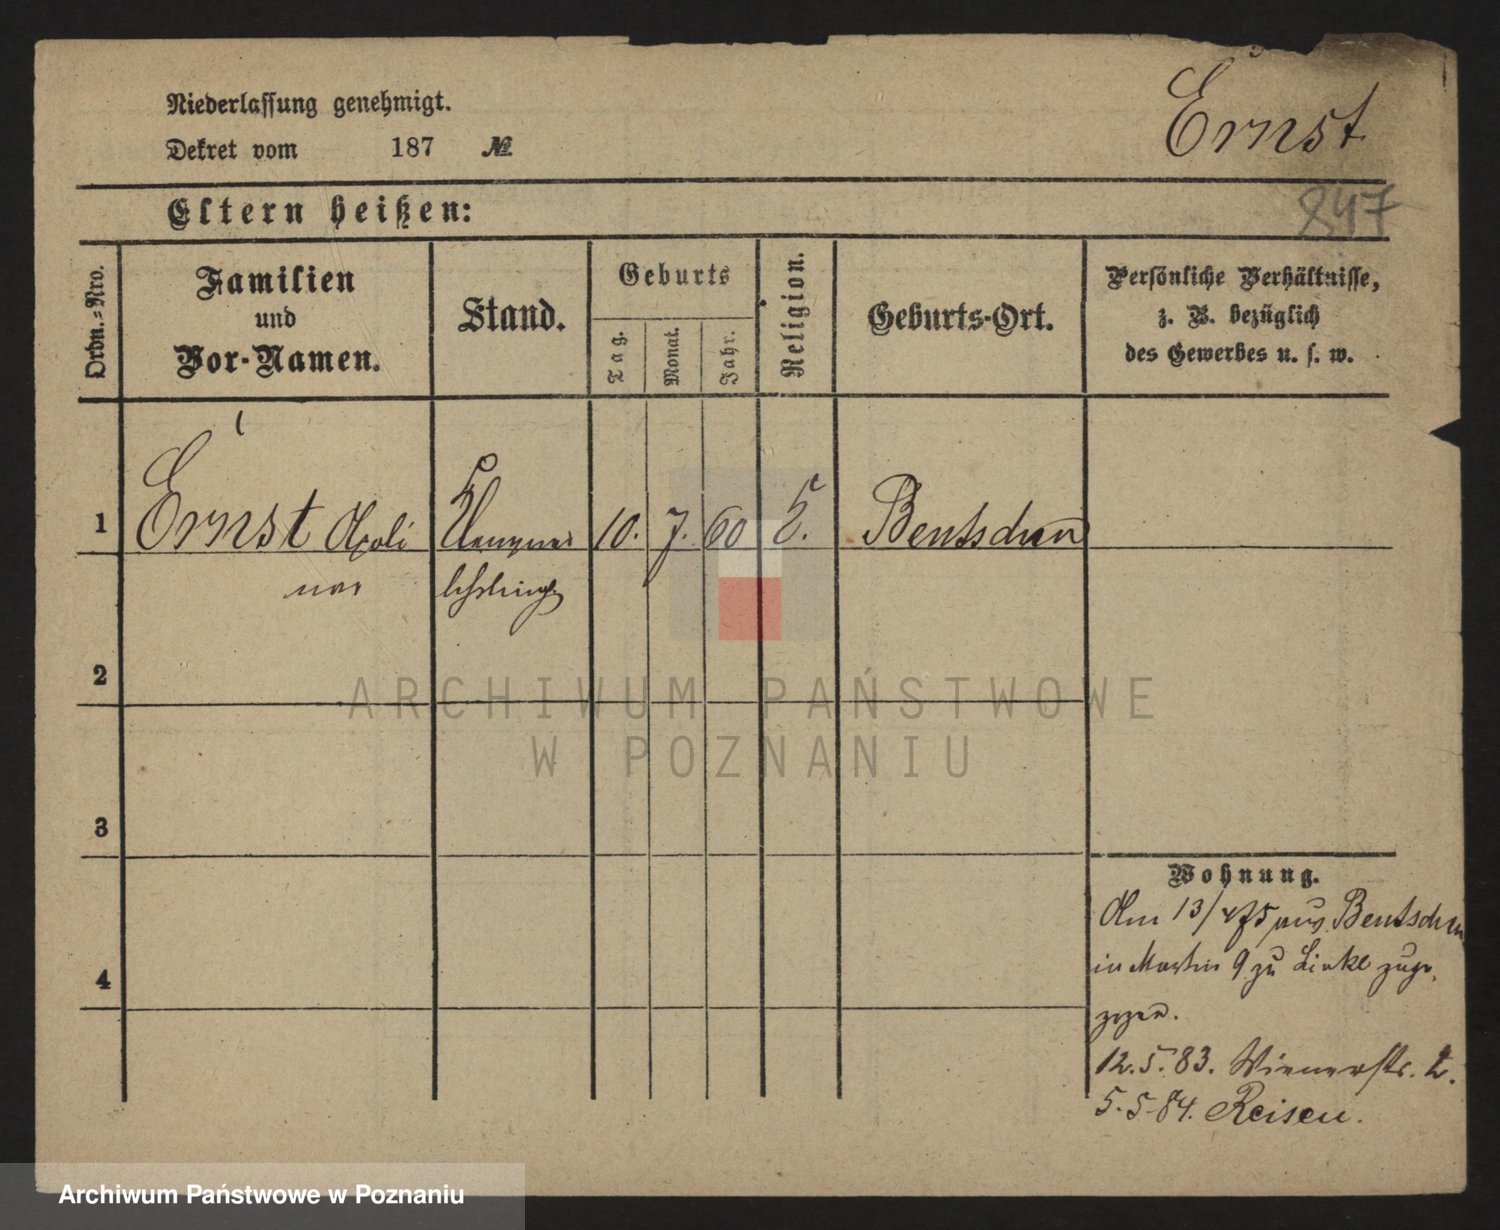 Niederlassung genehmigt.
Ernst
Dekret vom 187 №
847
Eltern heißen:
Ordn.=Nro.
Familien
und
Vor-Namen.
Stand.
Geburts
Tag.
Monat.
Jahr.
Religion.
Geburts-Ort.
Persönliche Verhältnisse,
z. B. bezüglich
des Gewerbes u. s. w.
1 Ernst Apoli Klempner 10. 7. 60 E. Bentschen
nar lehrling
2
3
4
Wohnung.
Am 13/ 75 aus Bentschen
in Martin 9 zu Linke zuge
zogen.
12.5.83. Wienerstr. 2.
5.5.84. Reisen.
ARCHIWUM PAŃSTWOWE
W POZNANIU
Archiwum Państwowe w Poznaniu